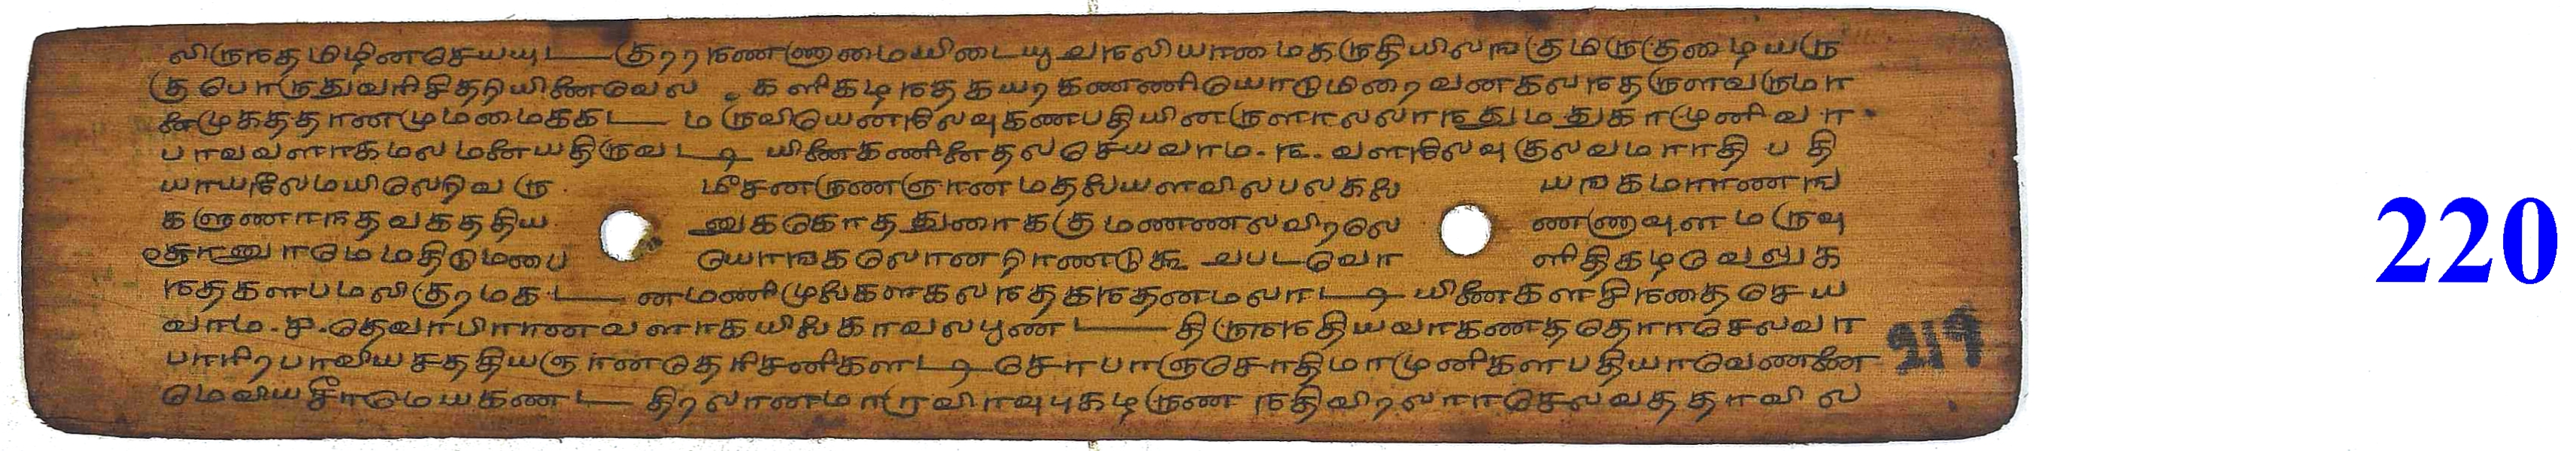 லிருநதமிழினசெயயுட்குறறநணணாமையிடையூவநலியாணமைகருதியிலஙகுமருகுழையரு
குபொருதுவரிசிதறியிணைவெல களிகடிநதகயறகணணியொடுமிறைவனகலநதருளவருமா
னைமுகததானமுமமைககட மருவியெனனிலைவுகணபதியினருளாலலாநதுமதுகாமுனிவர
பாவவளாகமலமனையதிருவடி யிணைகணினைதலசெயவாம.ங.வளநிலைவுகுலவமாராதிபதி
யாயநிலைமயிலெறிவரு மீசனருணஞானமதலையளவிலபலகலை யஙகமாரணங
களுணாநதவகததிய னுககொததுரைககுமணணலவிறலெ ணணாவுளமருவு
தொனுாமெமதிடுமபை யொஙகலொனறாணடுகூவபடவொ ளிதிகழவெலுக
நதகளபமலிகுறமக ளமணிமுலைகளகலநதகநதனமலரடி யிணைகளசிநதைசெய
வாம.ச.தெவாபிரானவளாகயிலைகாவலபூண திருநநதியவாகணதததொரசெலவா
பாரிறபாவியசததியஞானதெரிசனிகளடி சொபாஞசொதிமாமுனிகளபதியாவெணணெ
மெவியசீரமெயகணட திறலானமாறவிரவுபுகழருண நதிவிறலாரசெலவததாவில
217
220